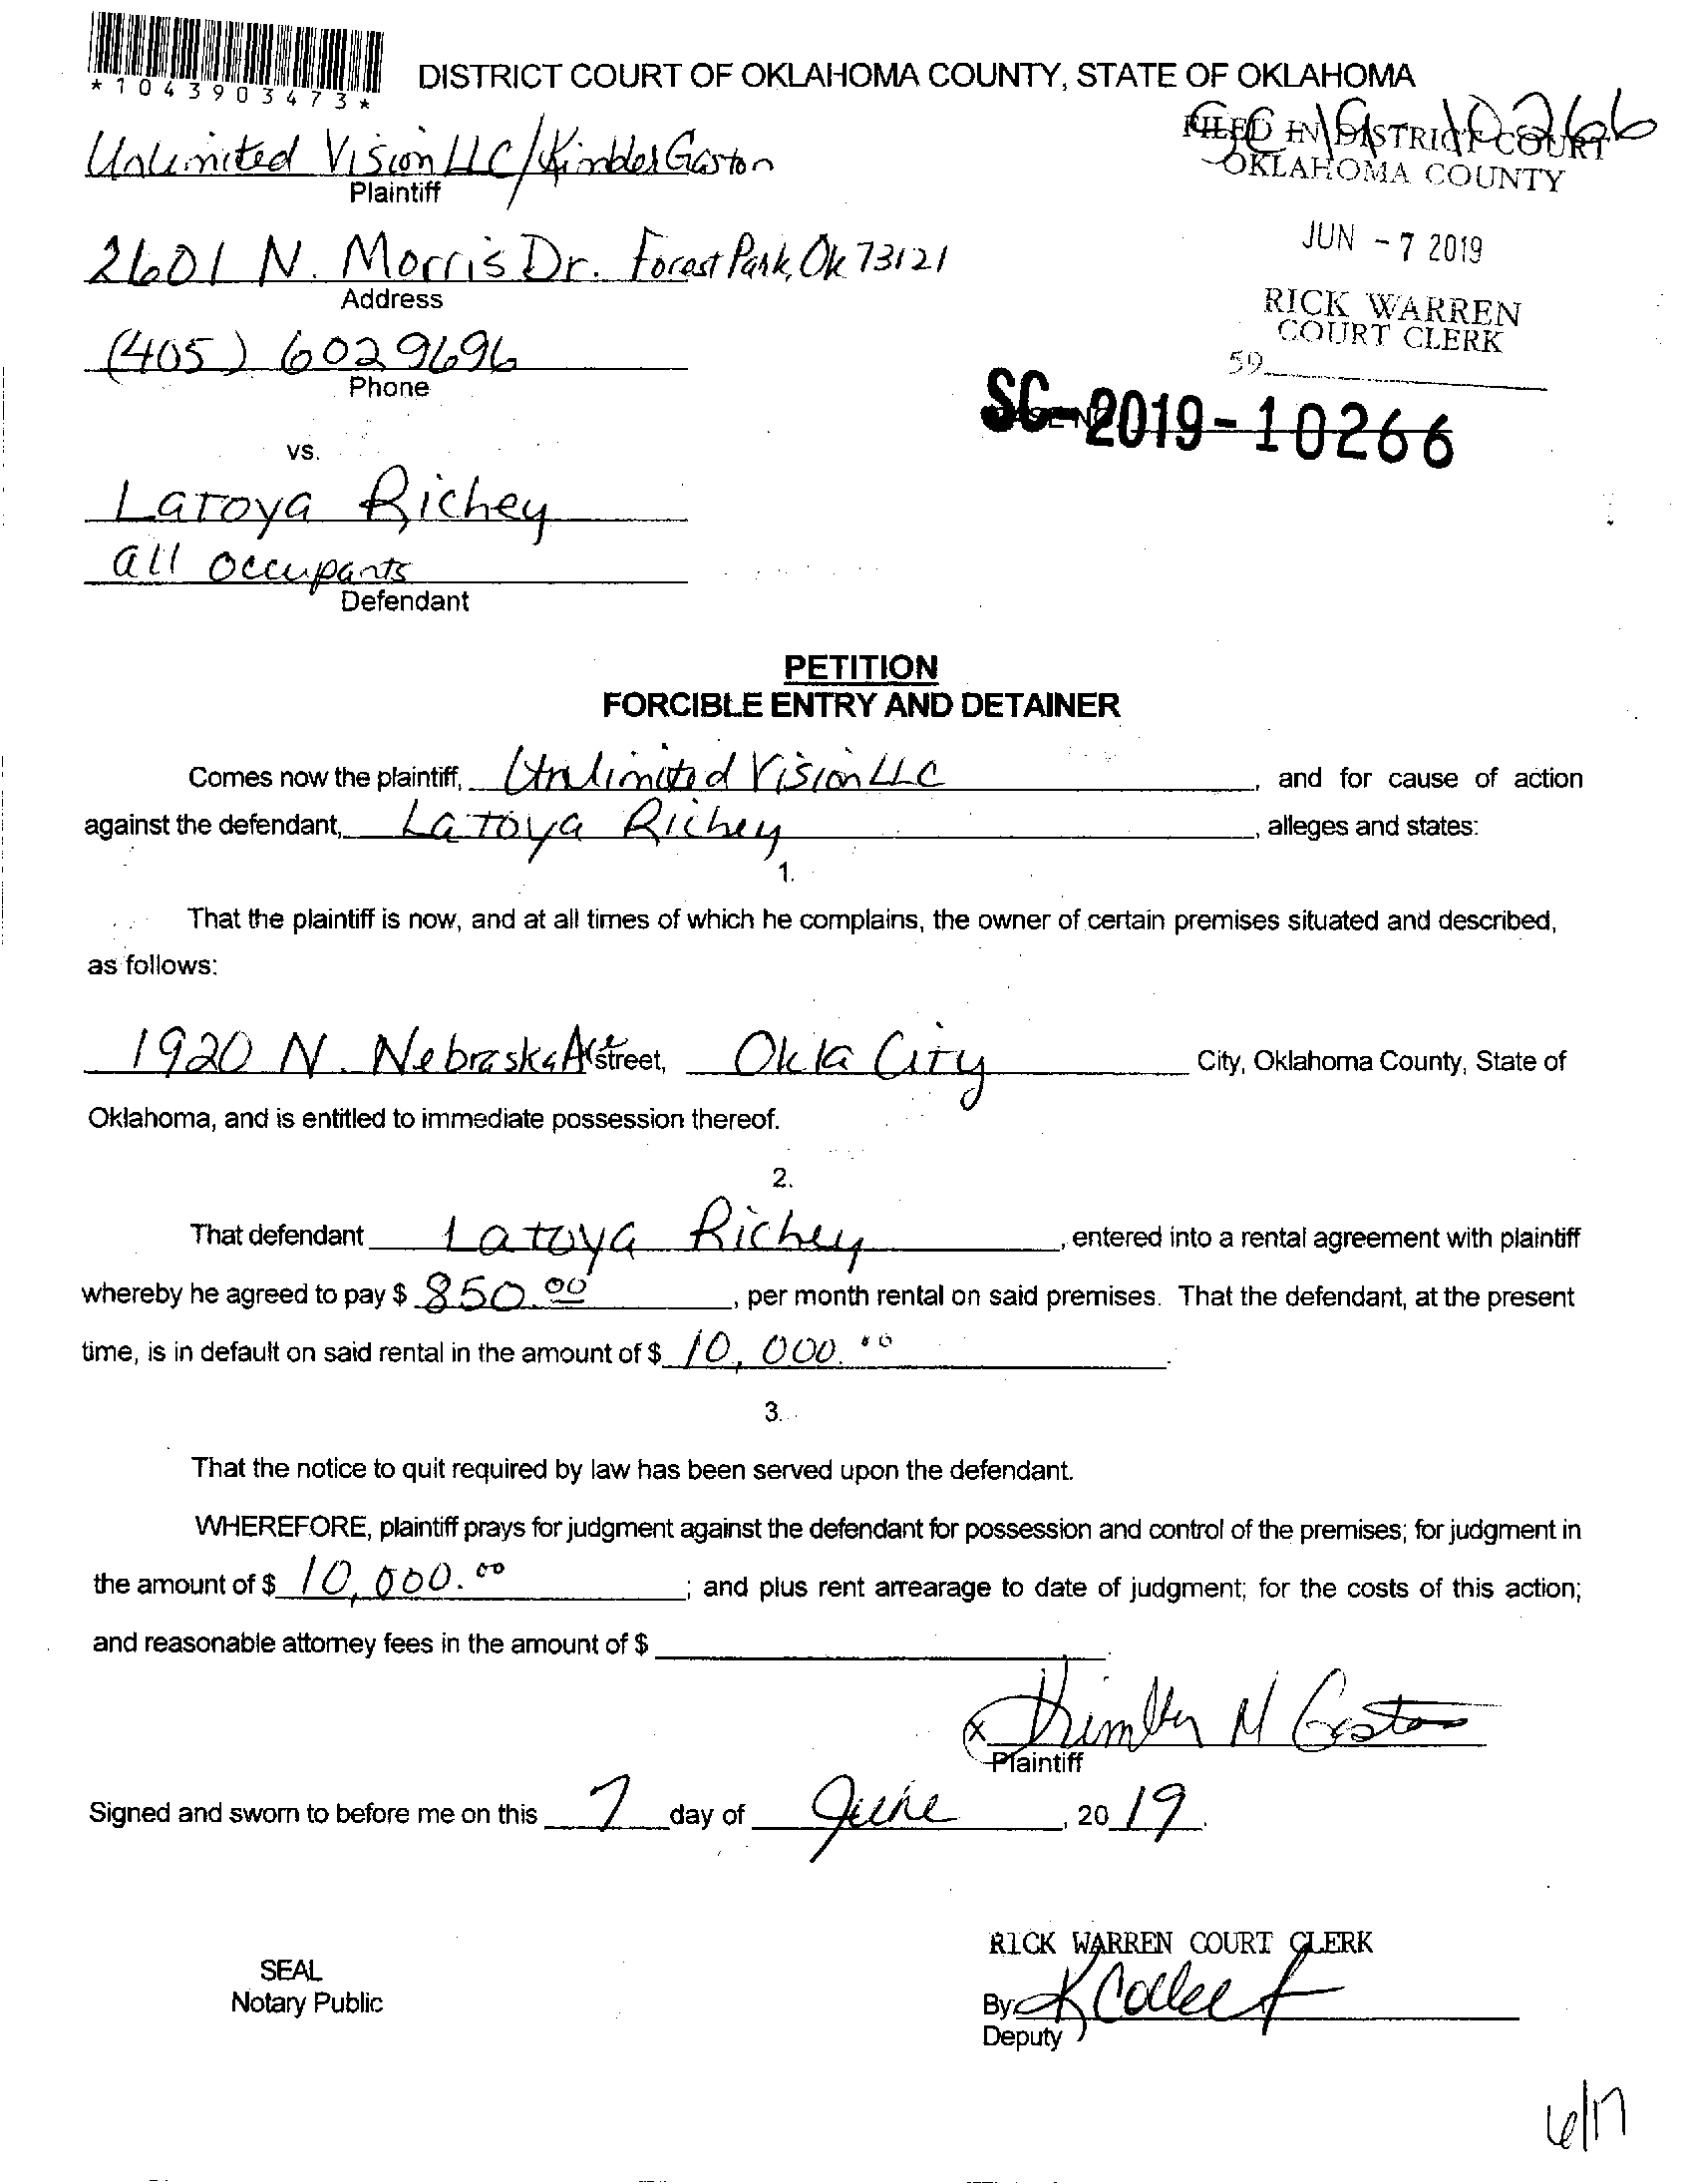 *1043903473*
DISTRICT COURT OF OKLAHOMA COUNTY, STATE OF OKLAHOMA
SC 19 10266
FILED IN DISTRICT COURT
OKLAHOMA COUNTY
Unlimited Vision LLC/Kimber Gaston
Plaintiff
JUN -7 2019
2601 N. Morris Dr. Forest Park, Ok 73121
Address
RICK WARREN
COURT CLERK
59
(405) 6029696
Phone
SC-2019-10266
vs.
LaToya Richey
all occupants
Defendant
PETITION
FORCIBLE ENTRY AND DETAINER
Comes now the plaintiff, Unlimited Vision LLC, and for cause of action
against the defendant, LaToya Richey, alleges and states:
1.
That the plaintiff is now, and at all times of which he complains, the owner of certain premises situated and described,
as follows:
1920 N. Nebraska Ave street, Okla City City, Oklahoma County, State of
Oklahoma, and is entitled to immediate possession thereof.
2.
That defendant Latoya Richey, entered into a rental agreement with plaintiff
whereby he agreed to pay $ 850.00, per month rental on said premises. That the defendant, at the present
time, is in default on said rental in the amount of $ 10,000.00.
3.
That the notice to quit required by law has been served upon the defendant.
WHEREFORE, plaintiff prays for judgment against the defendant for possession and control of the premises; for judgment in
the amount of $ 10,000.00; and plus rent arrearage to date of judgment; for the costs of this action;
and reasonable attorney fees in the amount of $
x Kimber N Gaston
Plaintiff
Signed and sworn to before me on this 7 day of June, 2019.
RICK WARREN COURT CLERK
SEAL
Notary Public
By K
Deputy
6/17